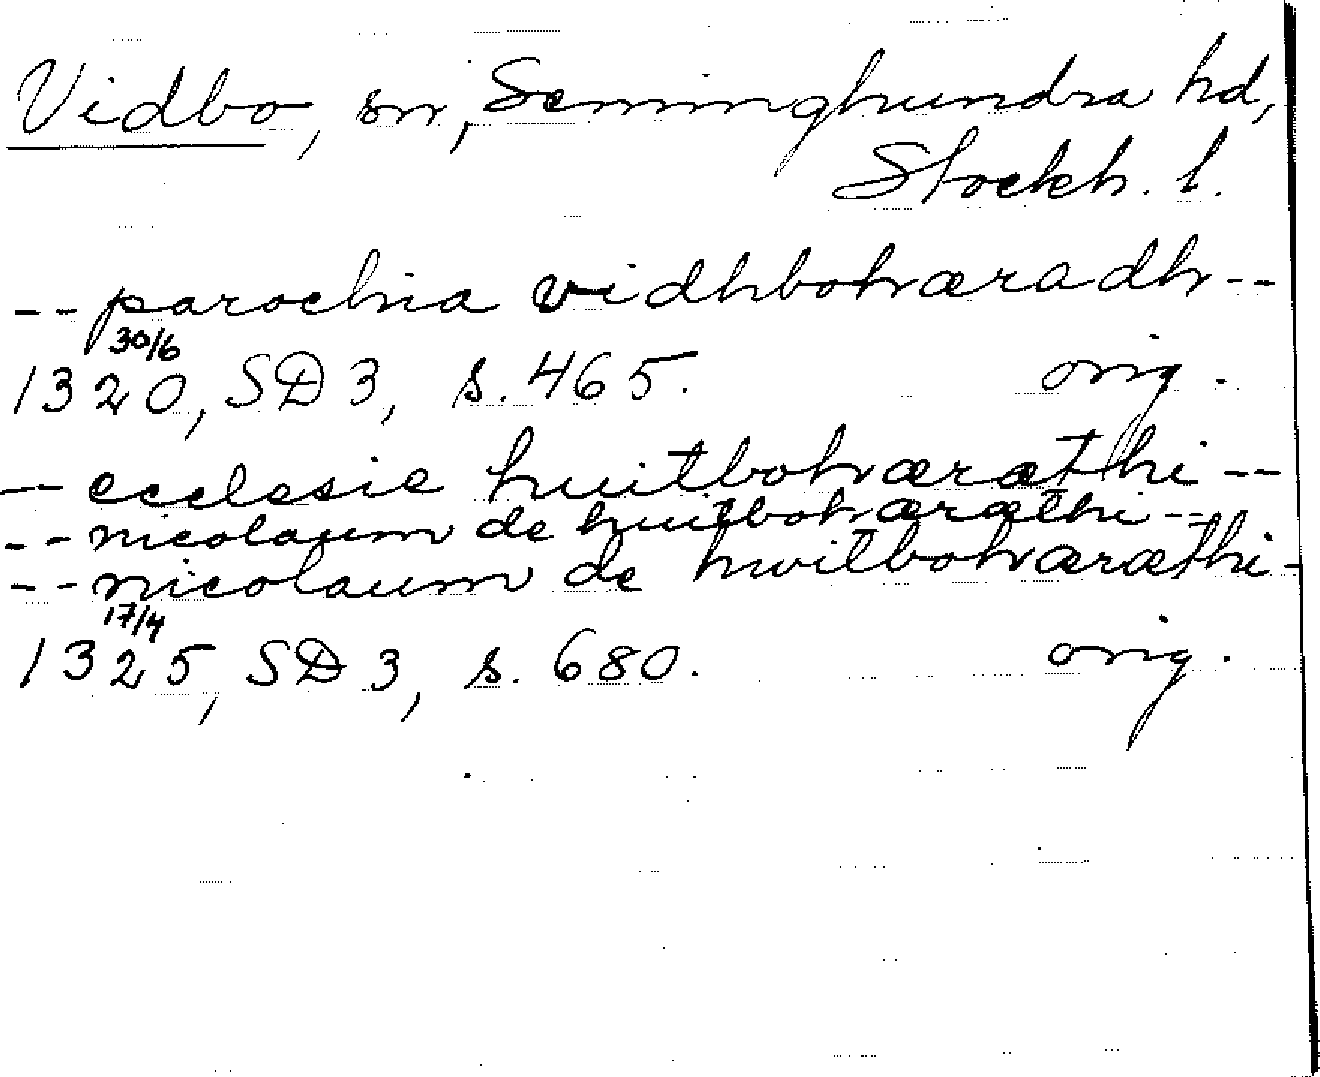 Vidbo, sn, Seminghundra hd,
Stockh. l.
-- parochia vidhbohæradh --
30/6
1320, SD 3, s. 465. orig.
-- ecclesie huitbohæræthi --
-- nicolaum de huitbohæræthi --
-- nicolaum de hwitbohæræthi -
17/4
1325, SD 3, s. 680. orig.